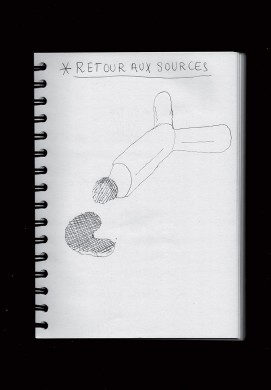 * RETOUR AUX SOURCES